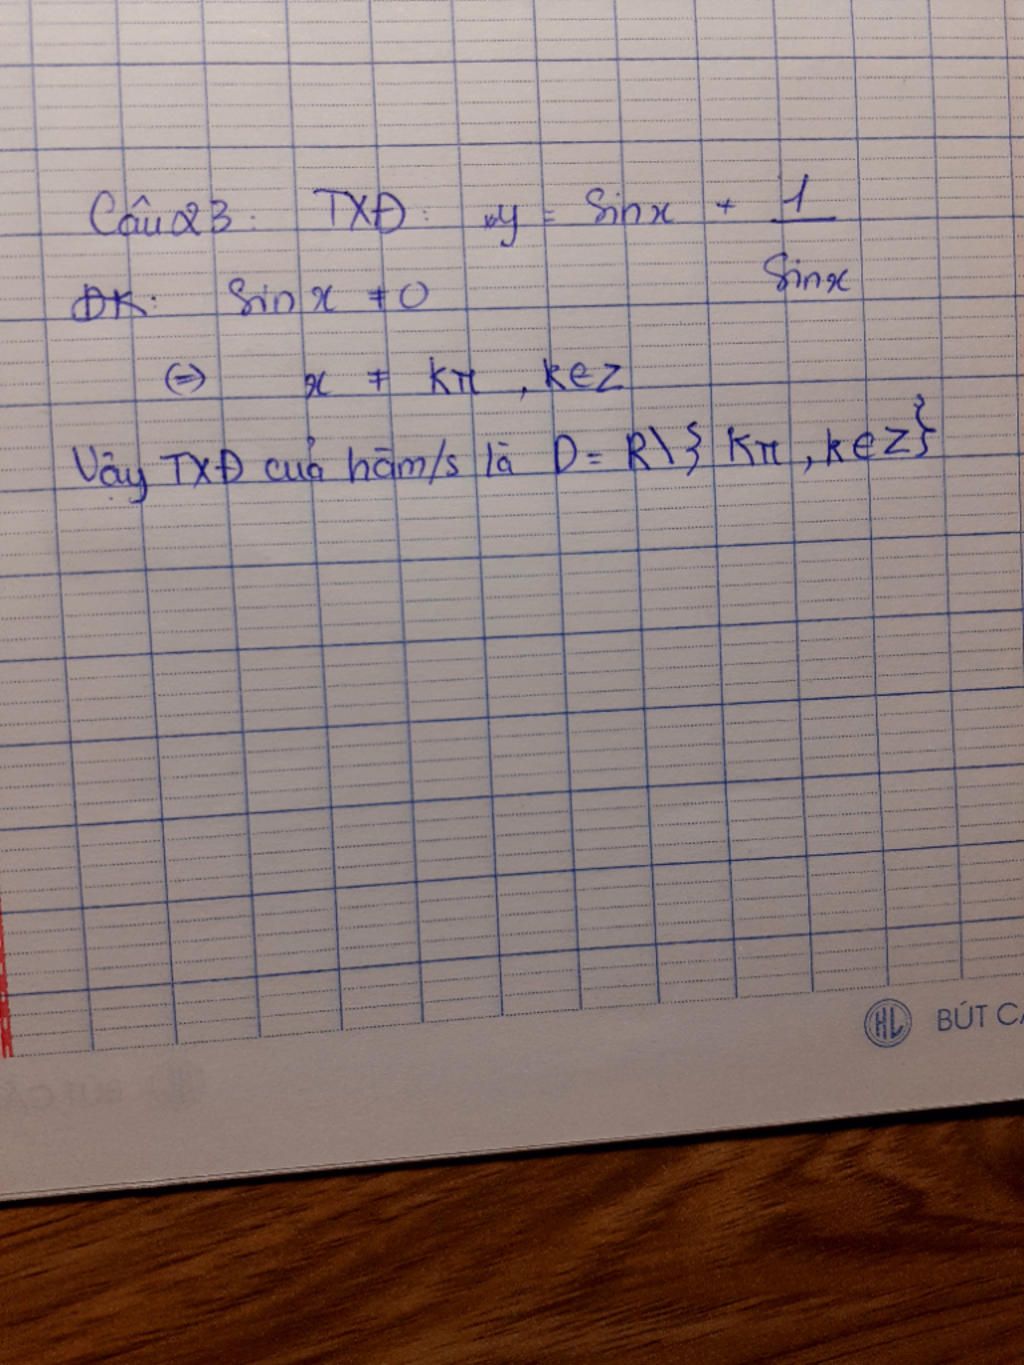 Câu 23: TXĐ: y = Sinx + 1/Sinx
ĐK: Sin x ≠ 0
(=) x ≠ kπ, k∈Z
Vậy TXĐ của hàm/s là D = R\{ Kπ, k∈Z}
HL BÚT CA